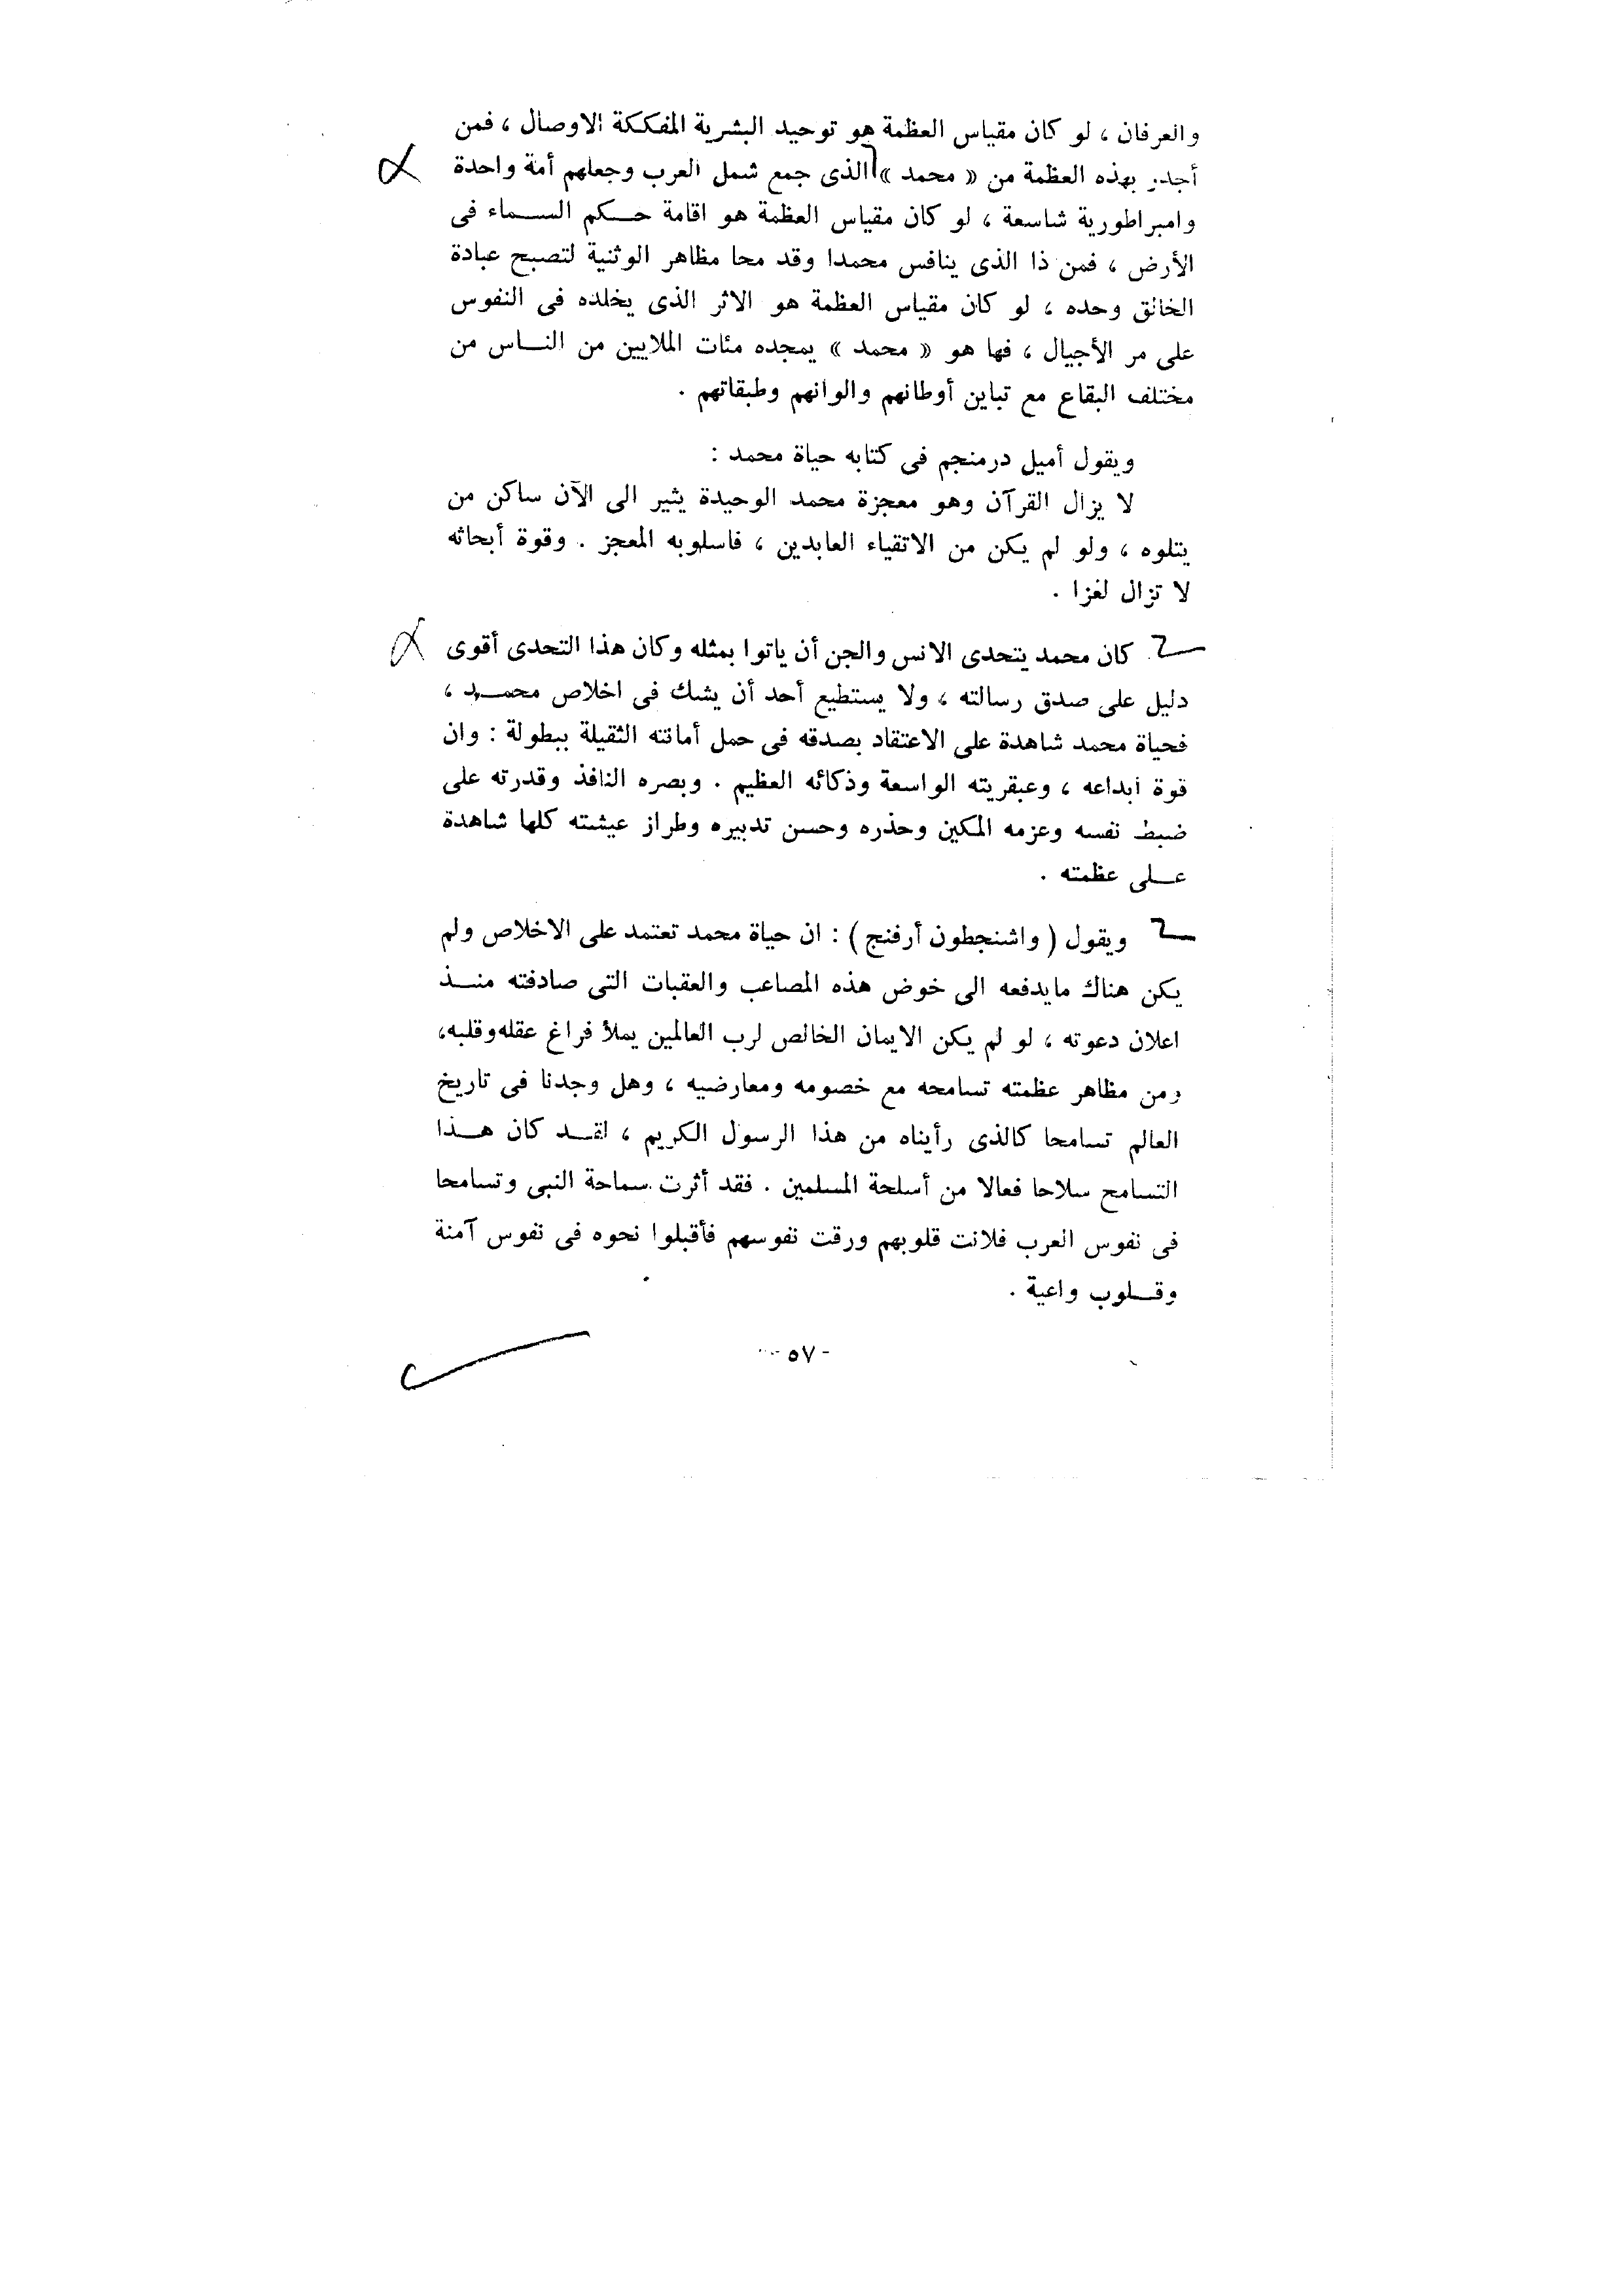 والعرفان ، لو كان مقياس العظمة هو توحيد البشرية المفككة الاوصال ، فمن
أجدر بهذه العظمة من « محمد » الذى جمع شمل العرب وجعلهم أمة واحدة
وامبراطورية شاسعة ، لو كان مقياس العظمة هو اقامة حكم السماء فى
الأرض ، فمن ذا الذى ينافس محمدا وقد محا مظاهر الوثنية لتصبح عبادة
الخالق وحده ، لو كان مقياس العظمة هو الاثر الذى يخلده فى النفوس
على مر الأجيال ، فها هو « محمد » يمجده مئات الملايين من الناس من
مختلف البقاع مع تباين أوطانهم والوانهم وطبقاتهم .
ويقول أميل درمنجم فى كتابه حياة محمد :
لا يزال القرآن وهو معجزة محمد الوحيدة يثير الى الآن ساكن من
يتلوه ، ولو لم يكن من الاتقياء العابدين ، فاسلوبه المعجز . وقوة أبحاثه
لا تزال لغزا .
كان محمد يتحدى الانس والجن أن ياتوا بمثله وكان هذا التحدى أقوى
دليل على صدق رسالته ، ولا يستطيع أحد أن يشك فى اخلاص محمد ،
فحياة محمد شاهدة على الاعتقاد بصدقه فى حمل أمانته الثقيلة ببطولة : وان
قوة ابداعه ، وعبقريته الواسعة وذكائه العظيم . وبصره النافذ وقدرته على
ضبط نفسه وعزمه المكين وحذره وحسن تدبيره وطراز عيشته كلها شاهدة
على عظمته .
ويقول ( واشنجطون أرفنج ) : ان حياة محمد تعتمد على الاخلاص ولم
يكن هناك مايدفعه الى خوض هذه المصاعب والعقبات التى صادفته منذ
اعلان دعوته ، لو لم يكن الايمان الخالص لرب العالمين يملأ فراغ عقله وقلبه،
ومن مظاهر عظمته تسامحه مع خصومه ومعارضيه ، وهل وجدنا فى تاريخ
العالم تسامحا كالذى رأيناه من هذا الرسول الكريم ، لقد كان هذا
التسامح سلاحا فعالا من أسلحة المسلمين . فقد أثرت سماحة النبى وتسامحا
فى نفوس العرب فلانت قلوبهم ورقت نفوسهم فأقبلوا نحوه فى نفوس آمنة
وقلوب واعية .
- ٥٧ -